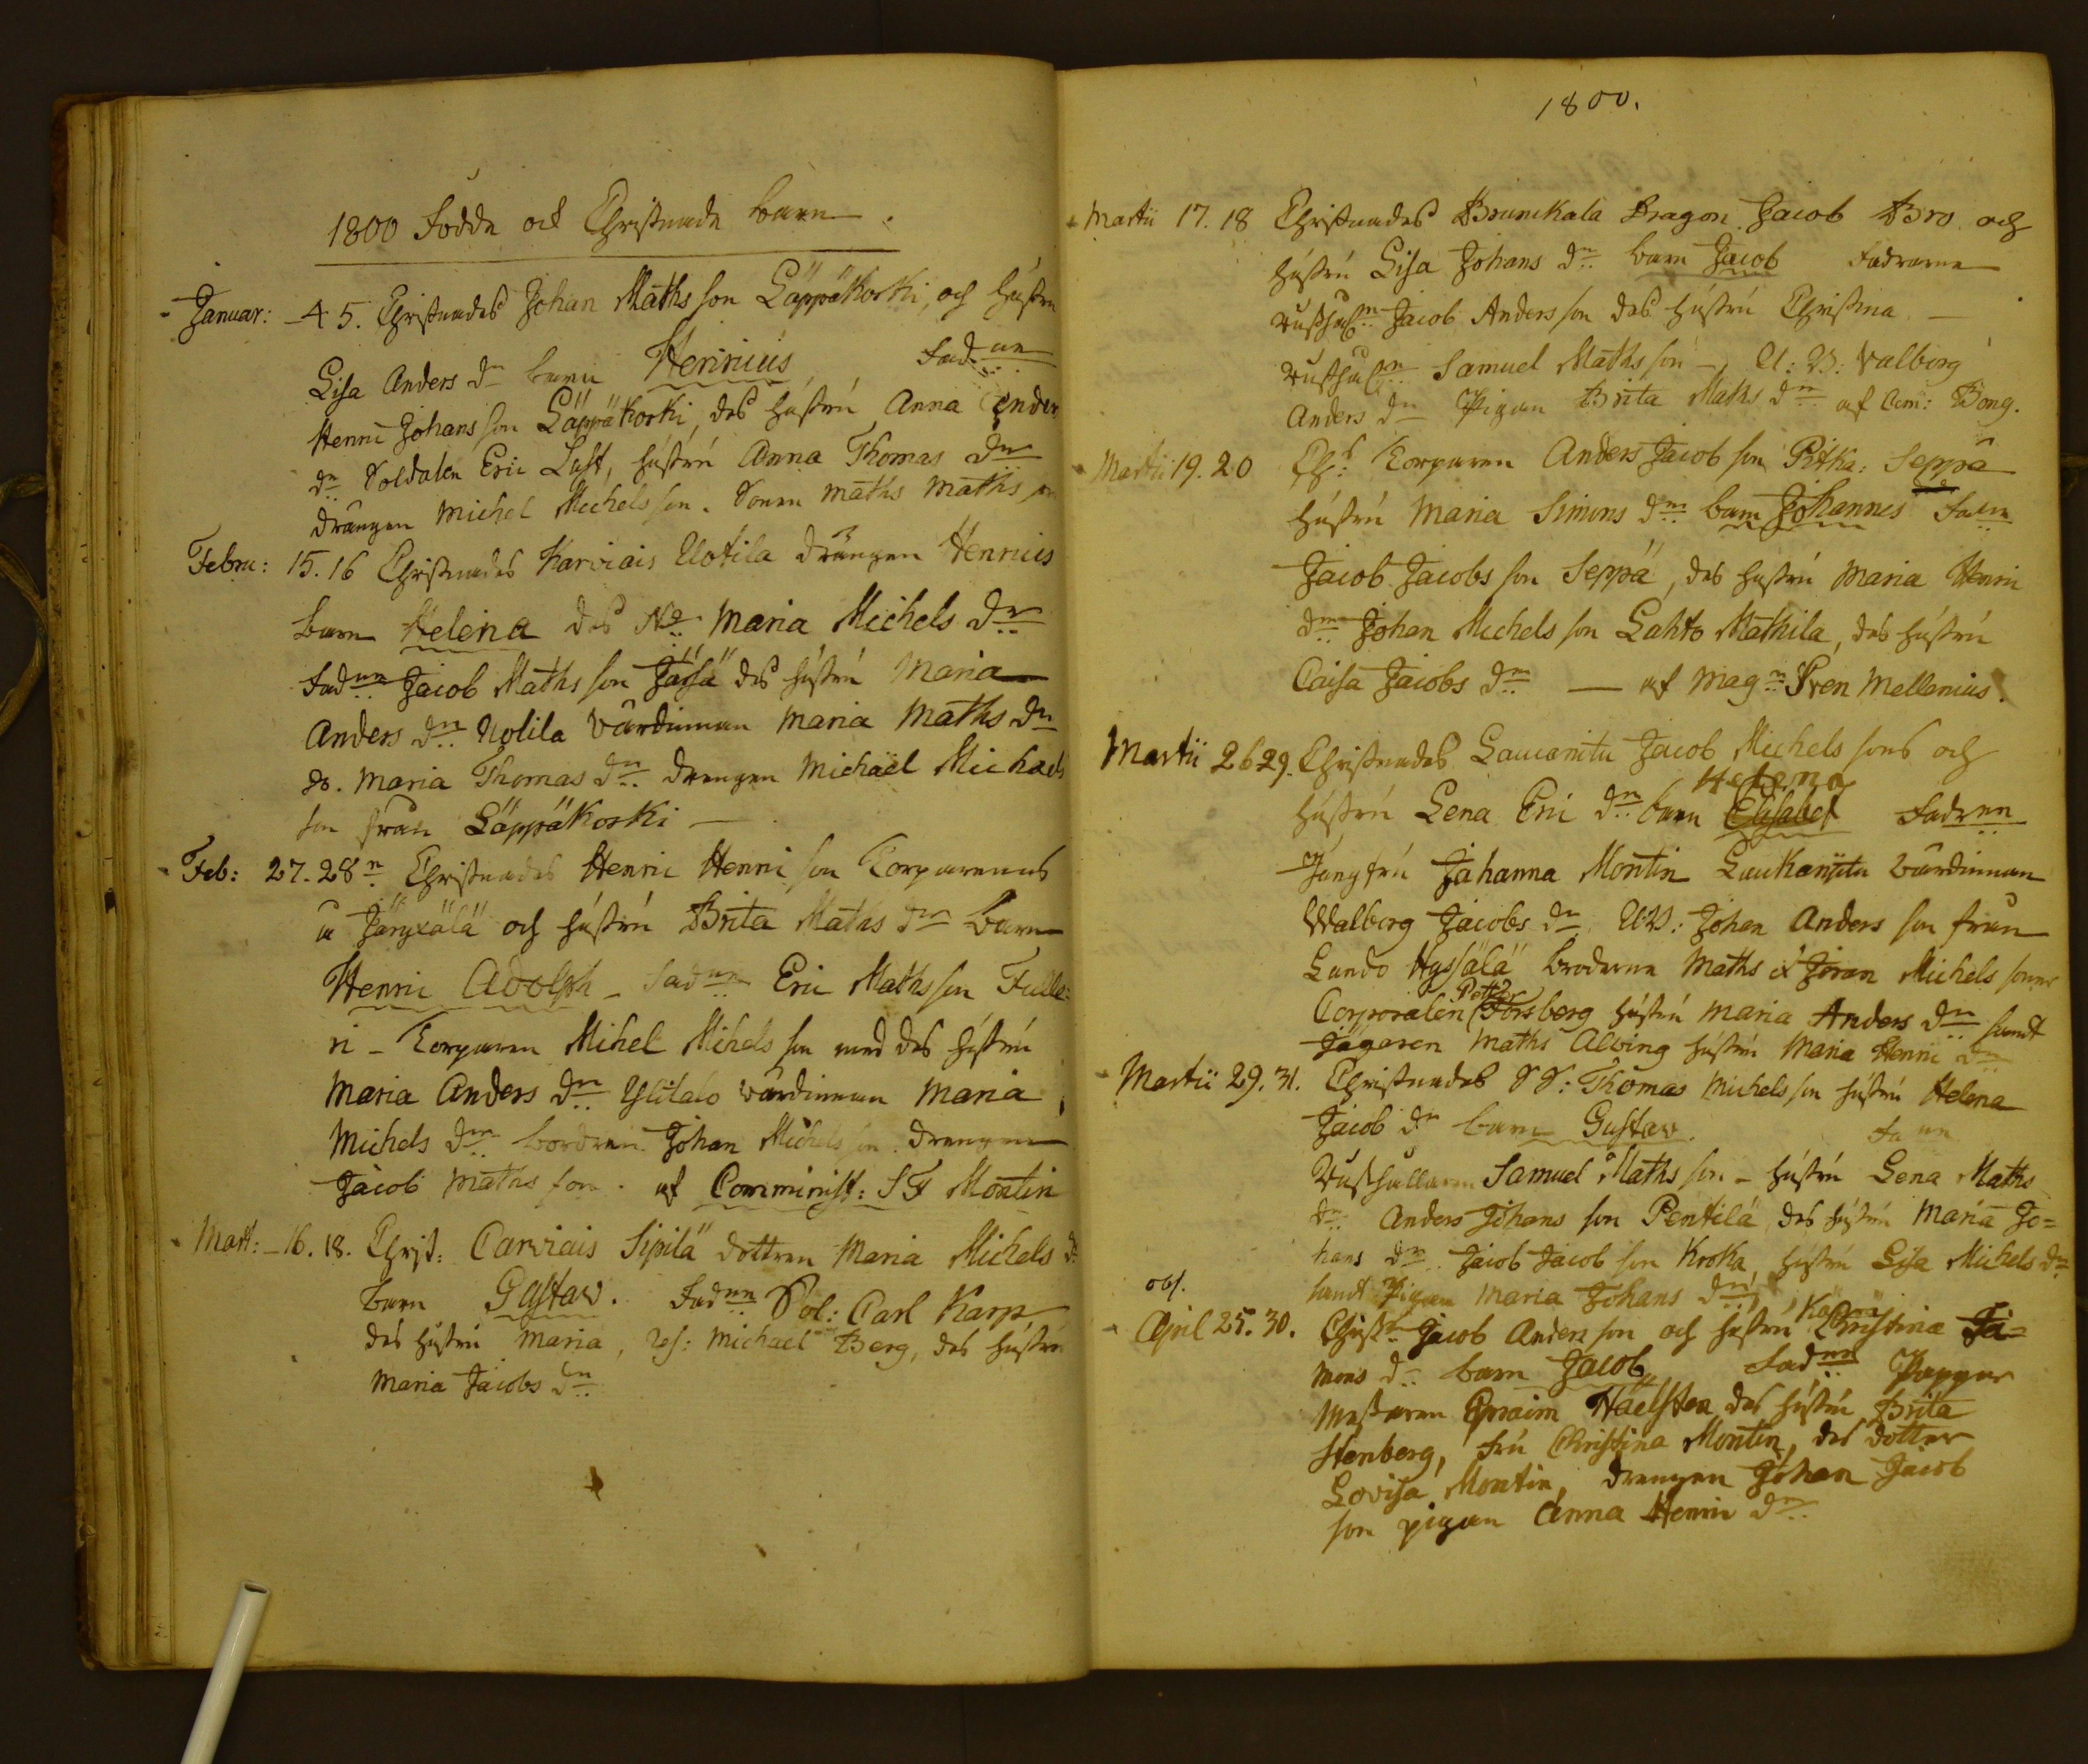 1800 Födde och Christnade barn.
Januar: 4 5. Christnades Johan Mathsson Läppäkoski, och hustru
Lisa Anders dr barn Henricus, Fadrne
Henric Johansson Läppäkoski, des hustru Anna Anders
dr Soldaten Eric Lust, hustru Anna Thomas dr
drängen Michel Michelsson. Sonen Maths Maths son
Febru: 15. 16 Christnades Karviais Uotila drängen Henrics
barn Helena des Maria Michels dr
Fadrne Jacob Maths son Jäsä des hustru Maria
Anders dr Uotila värdinnan Maria Maths dr
do. Maria Thomas dr drengen Michaël Michaels
son från Läppäkoski
Feb: 27. 28 Christnades Henric Henricson Torparens
å Järyxälä och hustru Brita Maths dr barn
Henric Adolph Fadrne Eric Mathsson Fulle:
ri Torparen Mihel Mihelsson med des hustru
Maria Anders dr Ylitalo värdinnan Maria
Michels dr Johan Michelsson drengen
Jacob Maths son. af Comminist: Montin
Mart: 16. 18. Christ: Carviais Sipilä dottren Maria Michels dr
barn Gustaw. Fadrne Sol: Carl Karp
des hustru Maria, Michael Berg, des hustru
Maria Jacobs dr
1800.
Martii 17. 18 Christnades Brunikala Dragon Jacob Bro och
hustru Lisa Johans dr barn Jacob Fadrarna
Rusthåln Jacob Andersson des hustru Christina
Rusthåln Samuel Mathsson Valborg
Anders dr Pigan Brita Maths dr af Bong.
Martii 19. 20 Torparen Anders Jacobson Pitka: Seppä
hustru Maria Simons dr barn Johannes Fadrne
Jacob Jacobs son Seppä, des hustru Maria Henric
dr Johan Michels son Lahto Mathila, des hustru
Caisa Jacobs dr af Mag Sven Mellenius.
Martii 26 29. Christnades Laucanitu Jacob Michelsons och
Helena
hustru Lena Eric dr barn Elisabet Fadrne
Jungfru Johanna Montin Laukanitu värdinnan
Walborg Jacobs dr Johan Anders son från
Lundo Hyssälä bröderna Maths Jöran Michels söner
Corporalen Petter Forsberg hustru Maria Anders dr samt
Jägaren Maths Alving hustru Maria Henric dr
Martii 29. 31. Christnades Thomas Michelsson hustru Helena
Jacob dr barn Gustav.
Rusthållaren Samuel Mathsson hustru Lena Maths
dr Anders Johans son Pentilä, des hustru Maria Jo=
hans dr Jacob Jacob son Krooka, hustru Lisa Michels dr
obs. samt Pigan Maria Johans dr
April 25. 30. Christ Jacob Anderson och hustru Christina Si=
mons dr barn Jacob Fadrne Pappers
Mästaren Epraim Häelsten des hustru Brita
Stenberg, fru Christina Montin, des dotter
Lovisa Montin, drengen Johan Jacob
son pigan Anna Henric dr